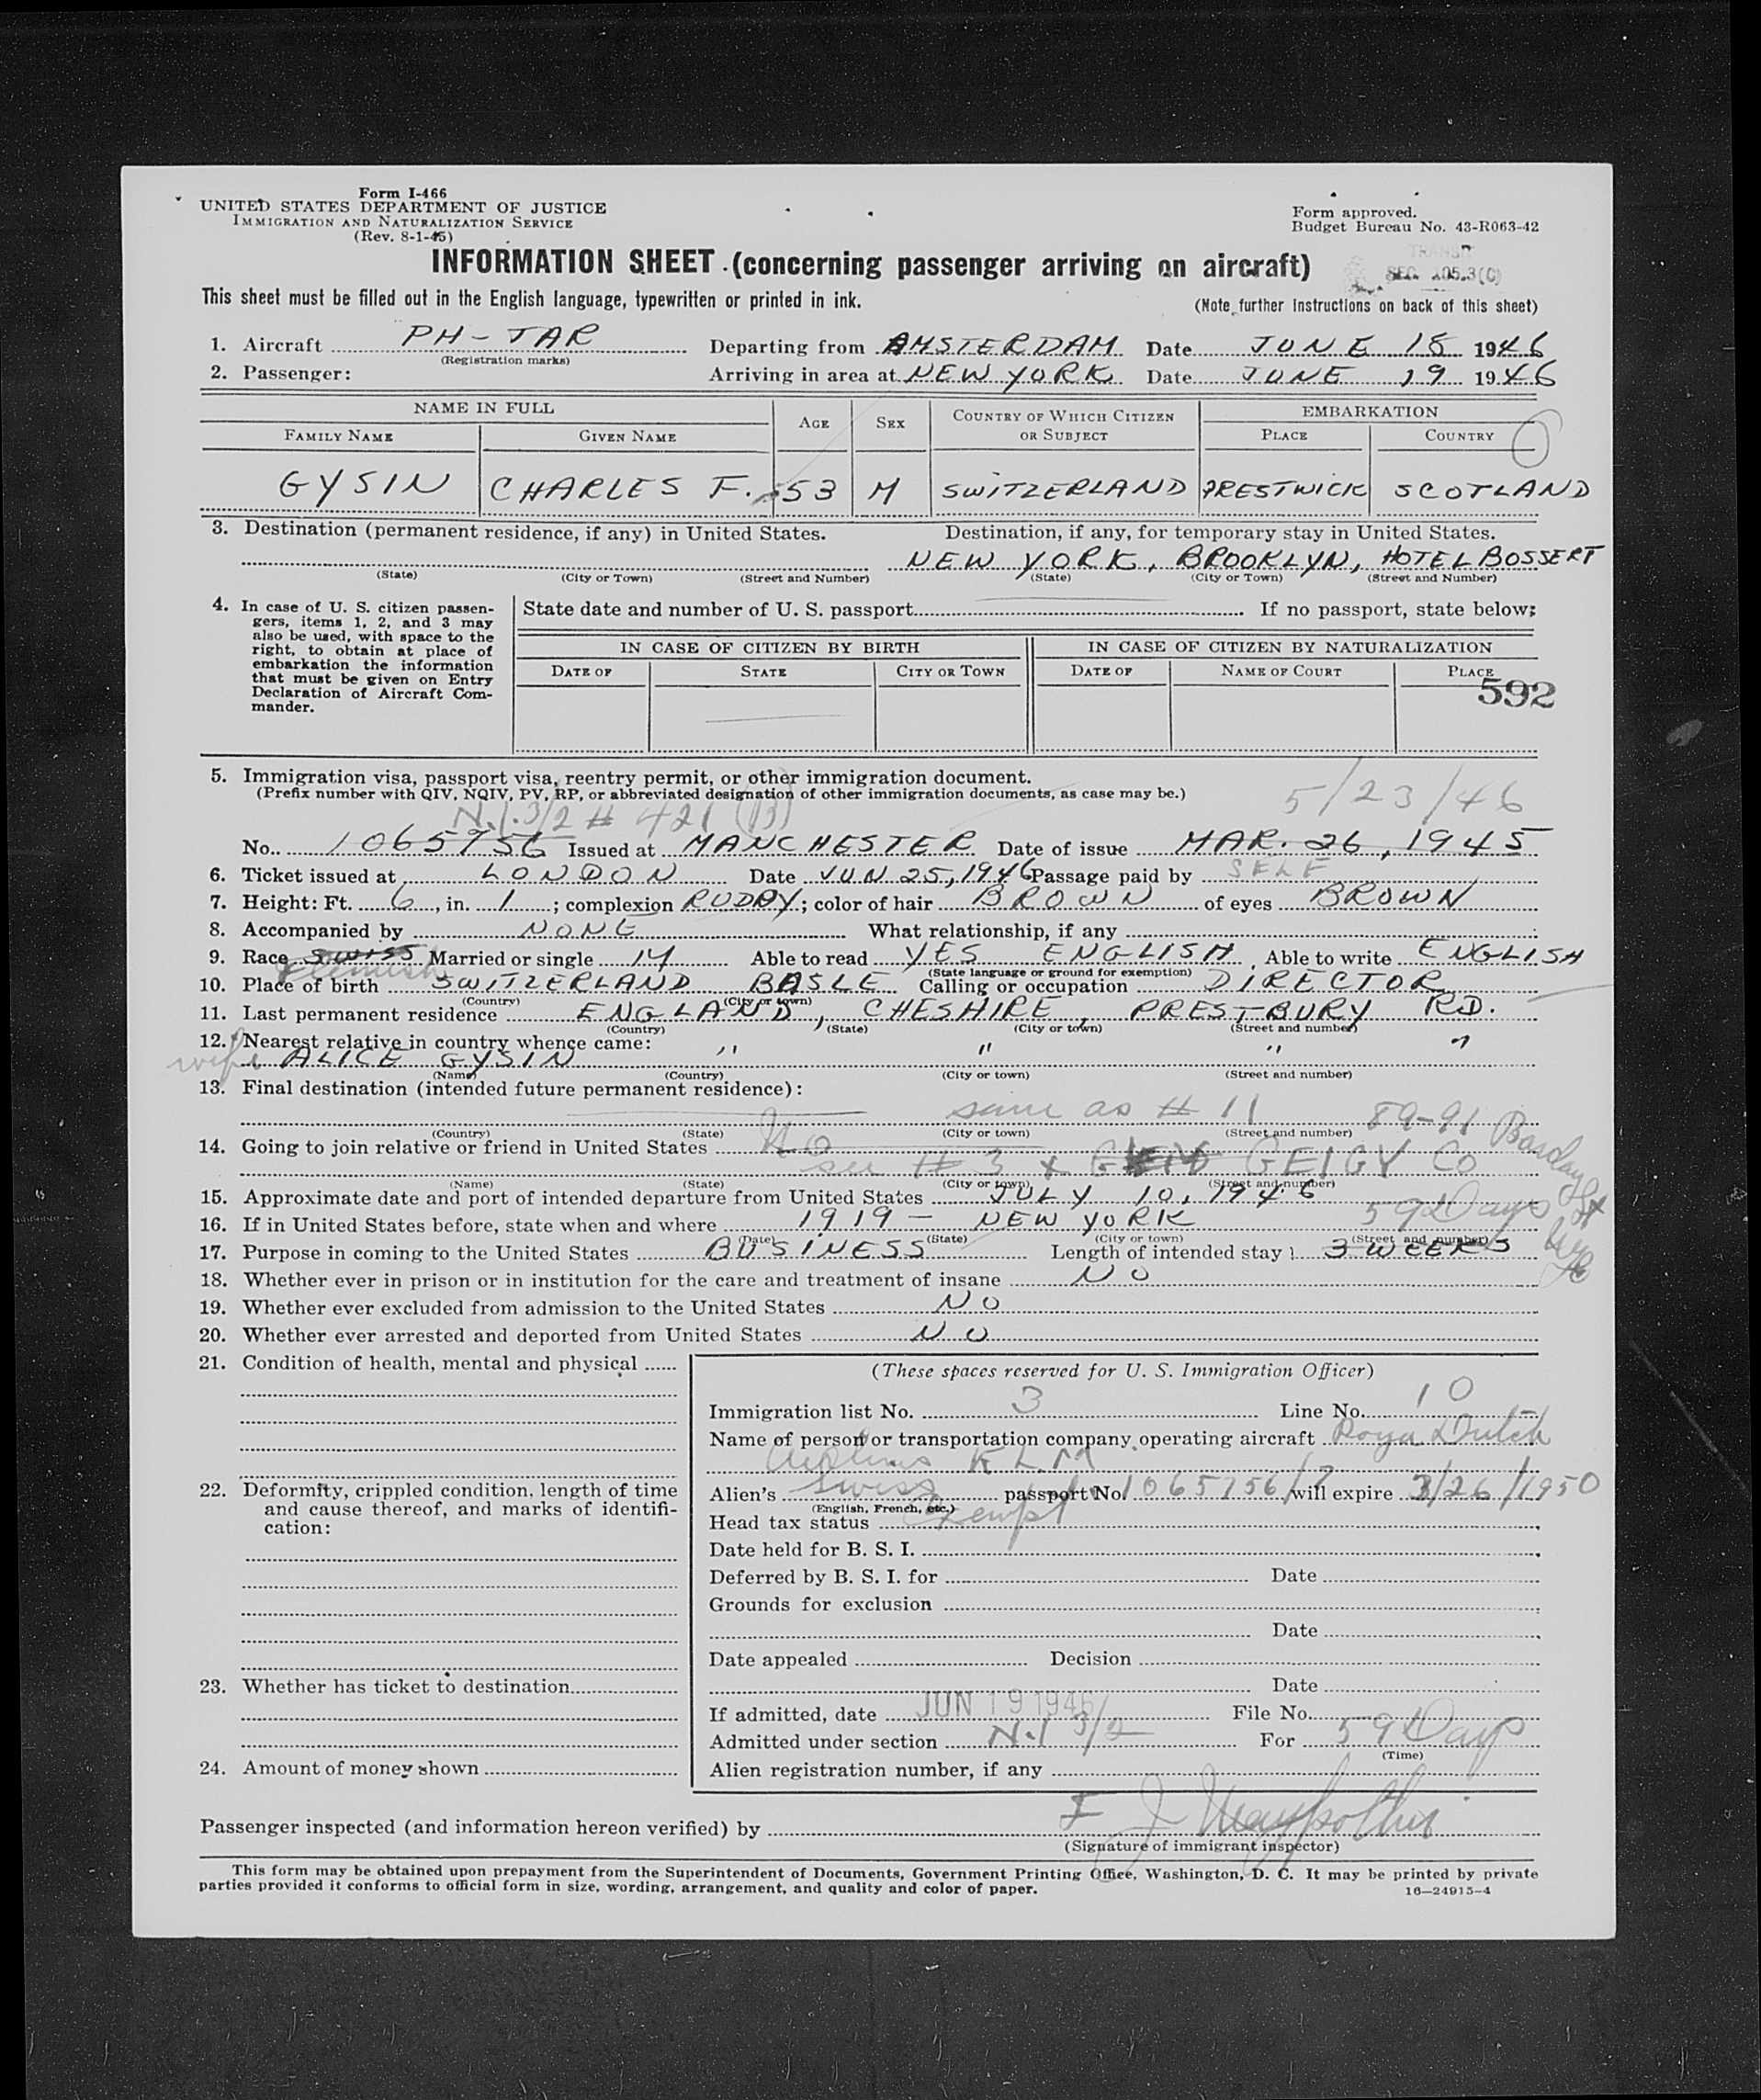 Form I-466
UNITED STATES DEPARTMENT OF JUSTICE
IMMIGRATION AND NATURALIZATION SERVICE
(Rev. 8-1-45)
Form approved.
Budget Bureau No. 43-R063-42
TRANSIT
SEC. 105.3(C)
INFORMATION SHEET (concerning passenger arriving on aircraft)
This sheet must be filled out in the English language, typewritten or printed in ink.
(Note further instructions on back of this sheet)
1. Aircraft PH-TAR Departing from AMSTERDAM Date JUNE 18 1946
(Registration marks)
2. Passenger: Arriving in area at NEW YORK Date JUNE 19 1946
NAME IN FULL AGE SEX COUNTRY OF WHICH CITIZEN OR SUBJECT EMBARKATION
FAMILY NAME GIVEN NAME PLACE COUNTRY
GYSIN CHARLES F. 53 M SWITZERLAND PRESTWICK SCOTLAND
3. Destination (permanent residence, if any) in United States. Destination, if any, for temporary stay in United States.
NEW YORK, BROOKLYN, HOTEL BOSSERT
(State) (City or Town) (Street and Number) (State) (City or Town) (Street and Number)
4. In case of U. S. citizen passen-
gers, items 1, 2, and 3 may
also be used, with space to the
right, to obtain at place of
embarkation the information
that must be given on Entry
Declaration of Aircraft Com-
mander.
State date and number of U. S. passport If no passport, state below:
IN CASE OF CITIZEN BY BIRTH IN CASE OF CITIZEN BY NATURALIZATION
DATE OF STATE CITY OR TOWN DATE OF NAME OF COURT PLACE
592
5. Immigration visa, passport visa, reentry permit, or other immigration document.
(Prefix number with QIV, NQIV, PV, RP, or abbreviated designation of other immigration documents, as case may be.)
N.I. 3/2 # 421 (B) 5/23/46
No. 1065756 Issued at MANCHESTER Date of issue MAR. 26, 1945
6. Ticket issued at LONDON Date JUN 25, 1946 Passage paid by SELF
7. Height: Ft. 6, in. 1; complexion RUDDY; color of hair BROWN of eyes BROWN
8. Accompanied by NONE What relationship, if any
9. Race SWISS Married or single M Able to read YES ENGLISH Able to write ENGLISH
Flemish (State language or ground for exemption)
10. Place of birth SWITZERLAND BASLE Calling or occupation DIRECTOR
(Country) (City or town)
11. Last permanent residence ENGLAND, CHESHIRE, PRESTBURY RD.
(Country) (State) (City or town) (Street and number)
12. Nearest relative in country whence came: " " " "
wife ALICE GYSIN
(Name) (Country) (City or town) (Street and number)
13. Final destination (intended future permanent residence):
same as # 11 89-91 Barclay St
(Country) (State) (City or town) (Street and number)
14. Going to join relative or friend in United States No
see # 3 + GEIGY CO
(Name) (State) (City or town) (Street and number)
15. Approximate date and port of intended departure from United States JULY 10, 1946
16. If in United States before, state when and where 1919 - NEW YORK 59 Days
(Date) (State) (City or town) (Street and number)
17. Purpose in coming to the United States BUSINESS Length of intended stay 3 WEEKS
18. Whether ever in prison or in institution for the care and treatment of insane NO
19. Whether ever excluded from admission to the United States NO
20. Whether ever arrested and deported from United States NO
21. Condition of health, mental and physical
(These spaces reserved for U. S. Immigration Officer)
Immigration list No. 3 Line No. 10
Name of person or transportation company operating aircraft Royal Dutch
Airlines KLM
22. Deformity, crippled condition, length of time
and cause thereof, and marks of identifi-
cation:
Alien's Swiss passport No. 1065756/7 will expire 3/26/1950
(English, French, etc.)
Head tax status Exempt
Date held for B. S. I.
Deferred by B. S. I. for Date
Grounds for exclusion
Date
Date appealed Decision
23. Whether has ticket to destination
Date
If admitted, date JUN 19 1946 File No.
Admitted under section N.I 3/2 For 59 Days
(Time)
24. Amount of money shown
Alien registration number, if any
Passenger inspected (and information hereon verified) by
(Signature of immigrant inspector)
This form may be obtained upon prepayment from the Superintendent of Documents, Government Printing Office, Washington, D. C. It may be printed by private
parties provided it conforms to official form in size, wording, arrangement, and quality and color of paper.
16—24915-4